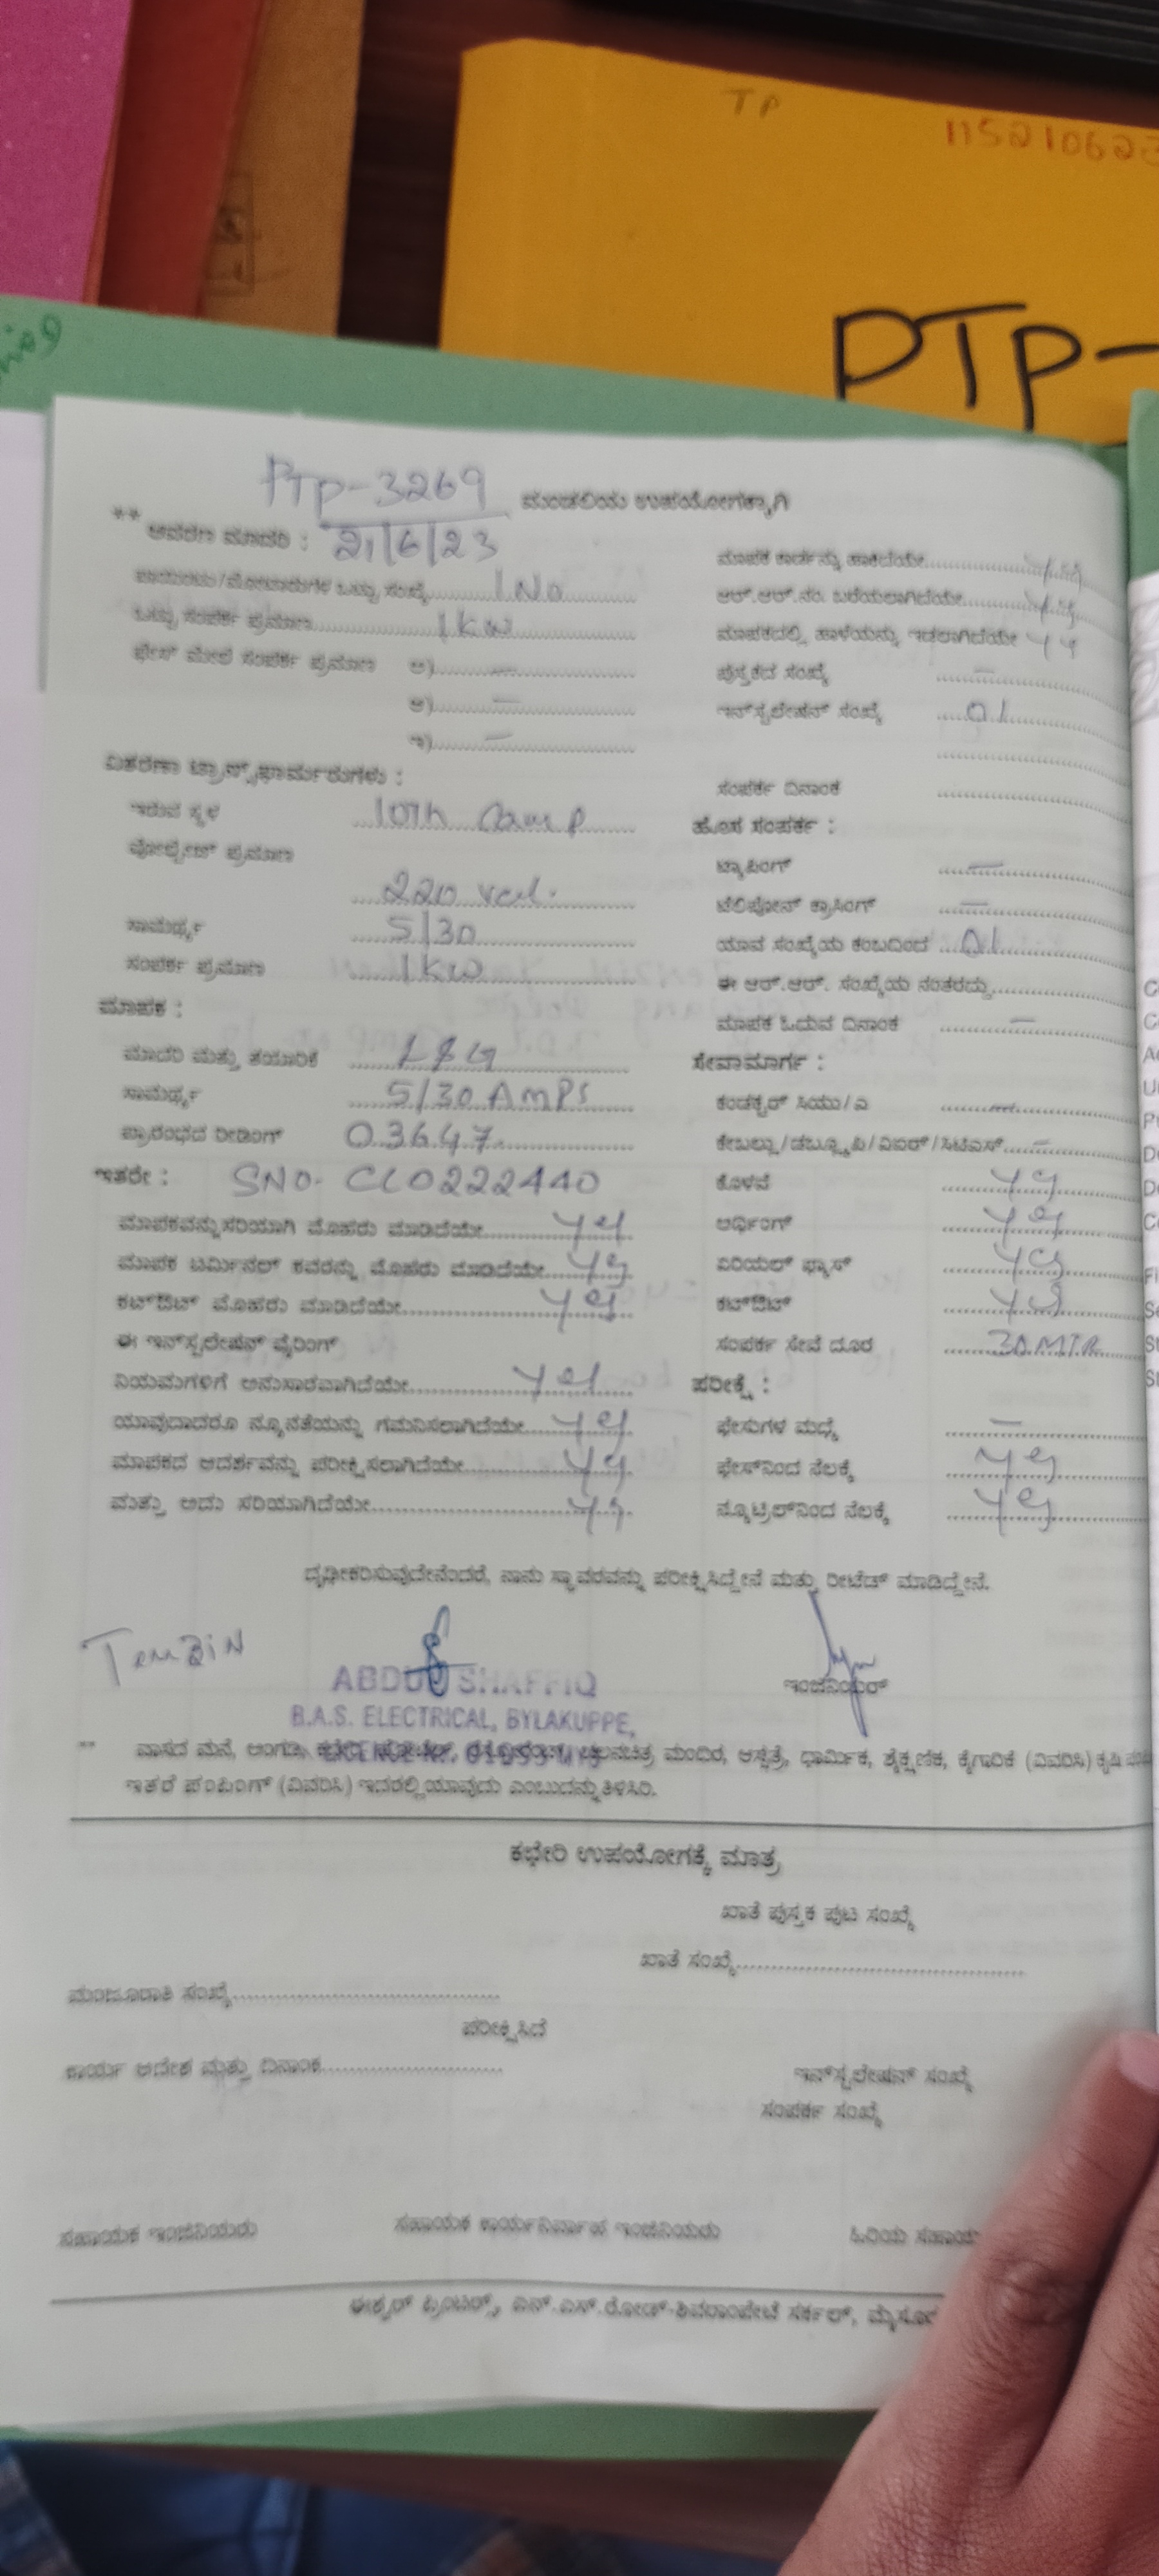 TP
11521062
PTP-
PTP-3269
ಮಂಡಳಿಯ ಉಪಯೋಗಕ್ಕಾಗಿ
** ಆವರಣ ಮಾದರಿ : 21/6/23
ಒಟ್ಟು ಸಂಖ್ಯೆ 1 No
ಒಟ್ಟು ಸಂಪರ್ಕ ಪ್ರಮಾಣ 1 kw
ಫೇಸ್ ಮೇಲೆ ಸಂಪರ್ಕ ಪ್ರಮಾಣ ಅ) —
ಆ) —
ಇ) —
ವಿತರಣಾ ಟ್ರಾನ್ಸ್‌ಫಾರ್ಮರುಗಳು :
ಇರುವ ಸ್ಥಳ 10th Camp
ವೋಲ್ಟೇಜ್ ಪ್ರಮಾಣ
220
ಸಾಮರ್ಥ್ಯ 5/30
ಸಂಪರ್ಕ ಪ್ರಮಾಣ 1 kw
ಮಾಪಕ :
ಮಾದರಿ ಮತ್ತು ತಯಾರಿಕೆ
ಸಾಮರ್ಥ್ಯ 5/30 AMPS
ಪ್ರಾರಂಭದ ರೀಡಿಂಗ್ 03647
ಇತರೇ : SNO- CL0222440
ಮಾಪಕವನ್ನು ಸರಿಯಾಗಿ ಮೊಹರು ಮಾಡಿದೆಯೇ
ಮಾಪಕ ಟರ್ಮಿನಲ್ ಕವರನ್ನು ಮೊಹರು ಮಾಡಿದೆಯೇ
ಕಟ್‌ಔಟ್ ಮೊಹರು ಮಾಡಿದೆಯೇ
ಈ ಇನ್‌ಸ್ಟಲೇಷನ್ ವೈರಿಂಗ್
ನಿಯಮಗಳಿಗೆ ಅನುಸಾರವಾಗಿದೆಯೇ
ಯಾವುದಾದರೂ ನ್ಯೂನತೆಯನ್ನು ಗಮನಿಸಲಾಗಿದೆಯೇ
ಮಾಪಕದ ಆದರ್ಶವನ್ನು ಪರೀಕ್ಷಿಸಲಾಗಿದೆಯೇ
ಮತ್ತು ಅದು ಸರಿಯಾಗಿದೆಯೇ
ಮಾಪಕ ಕಾರ್ಡನ್ನು ಹಾಕಿದೆಯೇ
ಆರ್.ಆರ್.ನಂ. ಬರೆಯಲಾಗಿದೆಯೇ
ಮಾಪಕದಲ್ಲಿ ಹಾಳೆಯನ್ನು ಇಡಲಾಗಿದೆಯೇ
ಪುಸ್ತಕದ ಸಂಖ್ಯೆ —
ಇನ್‌ಸ್ಟಲೇಷನ್ ಸಂಖ್ಯೆ 01
ಸಂಪರ್ಕ ದಿನಾಂಕ
ಹೊಸ ಸಂಪರ್ಕ :
ಟ್ಯಾಪಿಂಗ್ —
ಟೆಲಿಫೋನ್ ಕ್ರಾಸಿಂಗ್ —
ಯಾವ ಸಂಖ್ಯೆಯ ಕಂಬದಿಂದ 01
ಈ ಆರ್.ಆರ್. ಸಂಖ್ಯೆಯ ನಂತರದ್ದು
ಮಾಪಕ ಓದುವ ದಿನಾಂಕ —
ಸೇವಾಮಾರ್ಗ :
ಕಂಡಕ್ಟರ್ ಸಿಯು/ಎ —
ಕೇಬಲ್ಲು/ಡಬ್ಲ್ಯೂಪಿ/ವಿಐಆರ್/ಸಿಟಿಎಸ್ —
ಕೊಳವೆ
ಅರ್ಥಿಂಗ್
ಏರಿಯಲ್ ಫ್ಯೂಸ್
ಕಟ್‌ಔಟ್
ಸಂಪರ್ಕ ಸೇವೆ ದೂರ 30 MTR
ಪರೀಕ್ಷೆ :
ಫೇಸುಗಳ ಮಧ್ಯೆ —
ಫೇಸ್‌ನಿಂದ ನೆಲಕ್ಕೆ
ನ್ಯೂಟ್ರಲ್‌ನಿಂದ ನೆಲಕ್ಕೆ
ದೃಢೀಕರಿಸುವುದೇನೆಂದರೆ, ನಾನು ಸ್ಥಾವರವನ್ನು ಪರೀಕ್ಷಿಸಿದ್ದೇನೆ ಮತ್ತು ರೀಟೆಡ್ ಮಾಡಿದ್ದೇನೆ.
Tenzin
ABDUL SHAFFIQ
B.A.S. ELECTRICAL, BYLAKUPPE,
ಇಂಜಿನಿಯರ್
** ವಾಸದ ಮನೆ, ಅಂಗಡಿ, ಮಂದಿರ, ಆಸ್ಪತ್ರೆ, ಧಾರ್ಮಿಕ, ಶೈಕ್ಷಣಿಕ, ಕೈಗಾರಿಕೆ (ವಿವರಿಸಿ) ಕೃಷಿ
ಇತರೆ ಪಂಪಿಂಗ್ (ವಿವರಿಸಿ) ಇದರಲ್ಲಿ ಯಾವುದು ಎಂಬುದನ್ನು ತಿಳಿಸಿರಿ.
ಕಛೇರಿ ಉಪಯೋಗಕ್ಕೆ ಮಾತ್ರ
ಖಾತೆ ಪುಸ್ತಕ ಪುಟ ಸಂಖ್ಯೆ
ಖಾತೆ ಸಂಖ್ಯೆ
ಮಂಜೂರಾತಿ ಸಂಖ್ಯೆ
ಪರೀಕ್ಷಿಸಿದೆ
ಕಾರ್ಯ ಆದೇಶ ಮತ್ತು ದಿನಾಂಕ
ಇನ್‌ಸ್ಟಲೇಷನ್ ಸಂಖ್ಯೆ
ಸಂಪರ್ಕ ಸಂಖ್ಯೆ
ಸಹಾಯಕ ಇಂಜಿನಿಯರು ಸಹಾಯಕ ಕಾರ್ಯನಿರ್ವಾಹಕ ಇಂಜಿನಿಯರು ಹಿರಿಯ
ಈಶ್ವರ್ ಪ್ರಿಂಟರ್ಸ್, ಎನ್.ಎಸ್.ರೋಡ್-ಶಿವರಾಂಪೇಟೆ ಸರ್ಕಲ್,